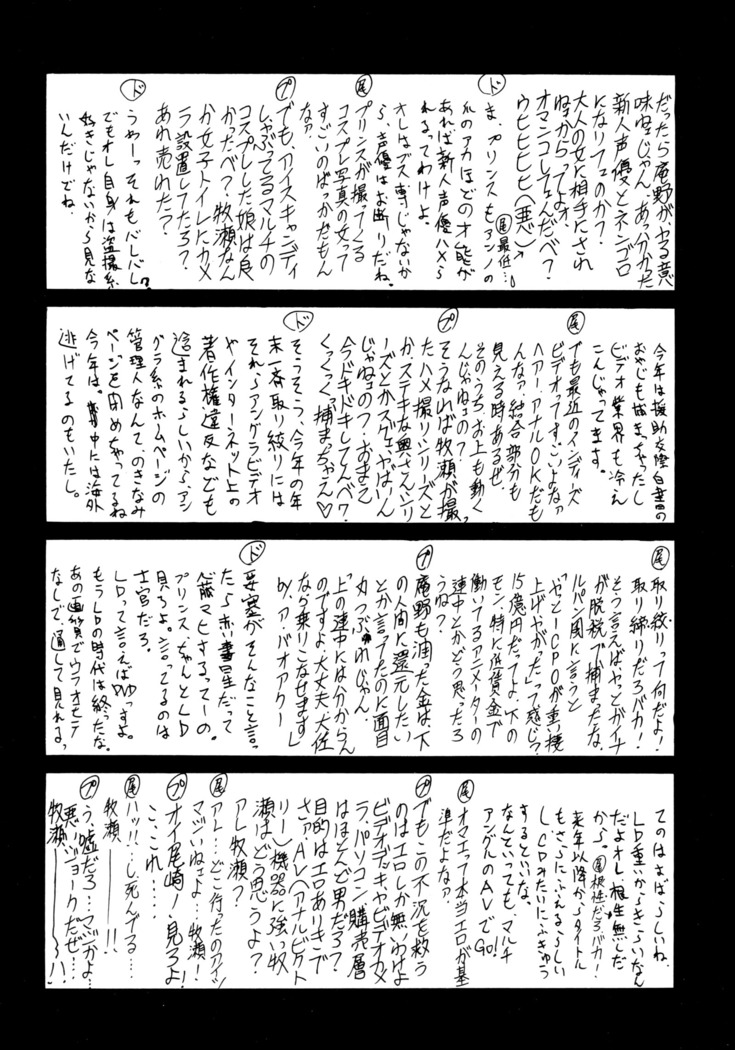 だったら庵野がやる意
味ねェじゃん、あっ、わかった
新人声優とネンゴロ
になりてェのか?
大人の女に相手にされ
ねェからってよォ、
オマンコしてェんだべ?
ウヒヒヒヒ(悪)
尾最低…。
ド
ま、プリンスもアンノの
爪のアカほどの才能が
あれば新人声優ハメら
れるってわけよ。
オレはブス専じゃないか
ら、声優はお断りだね。
尾
プリンスが撮ってくる
コスプレ写真の女って
すごいのばっかだもん
なァ。
プ
でも、アイスキャンディ
しゃぶってるマルチの
コスプレした娘は良
かったべ?牧瀬なん
か女子トイレにカメ
ラ設置してたろ?
あれ売れた?
ド
うめーっそれもバレバレ?
でもオレ自身は盗撮系
好きじゃないから見な
いんだけどね。
今年は援助交際白書の
おやじも捕まっちゃったし
ビデオ業界も冷え
こんじゃってます。
尾
でも最近のインディーズ
ビデオってすっごいよなァ
ヘアー、アナルOKだも
んなァ、結合部分も
見える時あるぜ。
そのうち、お上も動く
んじゃねェの?
プ
そうなれば牧瀬が撮っ
たハメ撮りシリーズと
か、ステキな奥さんシリ
ーズとかスゲェやばいん
じゃねェのっ、おまえ
今ドキドキしてんべ?
くっくっくっ捕まっちゃえ♡
ド
そうそう、今年の年
末一斉取り絞りには
それらアングラビデオ
やインターネット上の
著作権違反なども
含まれるらしいからアン
グラ系のホームページの
管理人なんて、のきなみ
ページを閉めちゃってるね
今年は。連中には海外
逃げてるのもいたし。
尾
取り絞りって何だよ!
取り締りだろバカ!
そう言えばやっとガイナ
が脱税で捕まったな。
ルパン風に言うと
「やっとICPOが重い腰
上げやがった」って感じっ?
15億円だってよ、下の
モン、特に低賃金で
働いてるアニメーターの
連中とかどう思ったろ
うね?
プ
庵野も潤った金は、下
の人間に還元したい
とか言ってたのに面目
丸つぶれじゃん。
「上の連中には分からん
のですよ、大丈夫大佐
なら乗りこなせます」
by、ア・バオアクー
ド
要塞がそんなこと言っ
たら赤い彗星だって
心臓マヒするってーの
プリンス、ちゃんとLD
見ろよ。言ってるのは
士官だろ。
LDって言えばDVDっすよ。
もうLDの時代は終ったな。
あの画質でウラオモテ
なしで、通して見れるっ
てのはすばらしいね、
LD重いからきらいなん
だよオレ、根性無しだ
から。尾根性だろバカ!
来年以降からタイトル
もさらにふえるらしい
し、CDみたいにふきゅう
するといいな。
なんといっても、マルチ
アングルのAVでGO!
尾
オマエって本当エロが基
準だよなァ。
プ
でもこの不況を救う
のはエロしか無いわけよ
ビデオデッキやビデオカメ
ラ、パソコン購売層
はほとんど男だろ?
目的はエロありきで
さァ、AV(アナルビクト
リー)機器に強い牧
瀬はどう思うよ?
アレ牧瀬?
尾
アレ…どこ行ったのアイツ
マジいねェよ…牧瀬!
プ
オイ尾崎ノ、見ろよ!
こ、これ…
尾
ハッ!!…し死んでる…
牧瀬――!!
プ
う、嘘だろ…マジかよ…
悪いジョークだぜ……
牧瀬――――〜!!